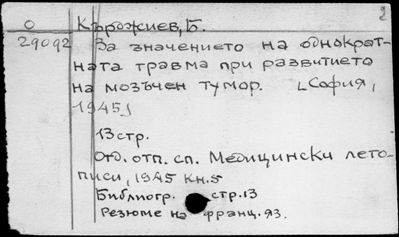 О Кърожиев, Б. 2
29092 За значението на однократ-
ната травма при развитието
на мозъчен тумор. [София,
1945]
13 стр.
Отд. отп. сп. Медицински лето-
писи, 1945 кн. 5
Библиогр. стр. 13
Резюме на франц. яз.